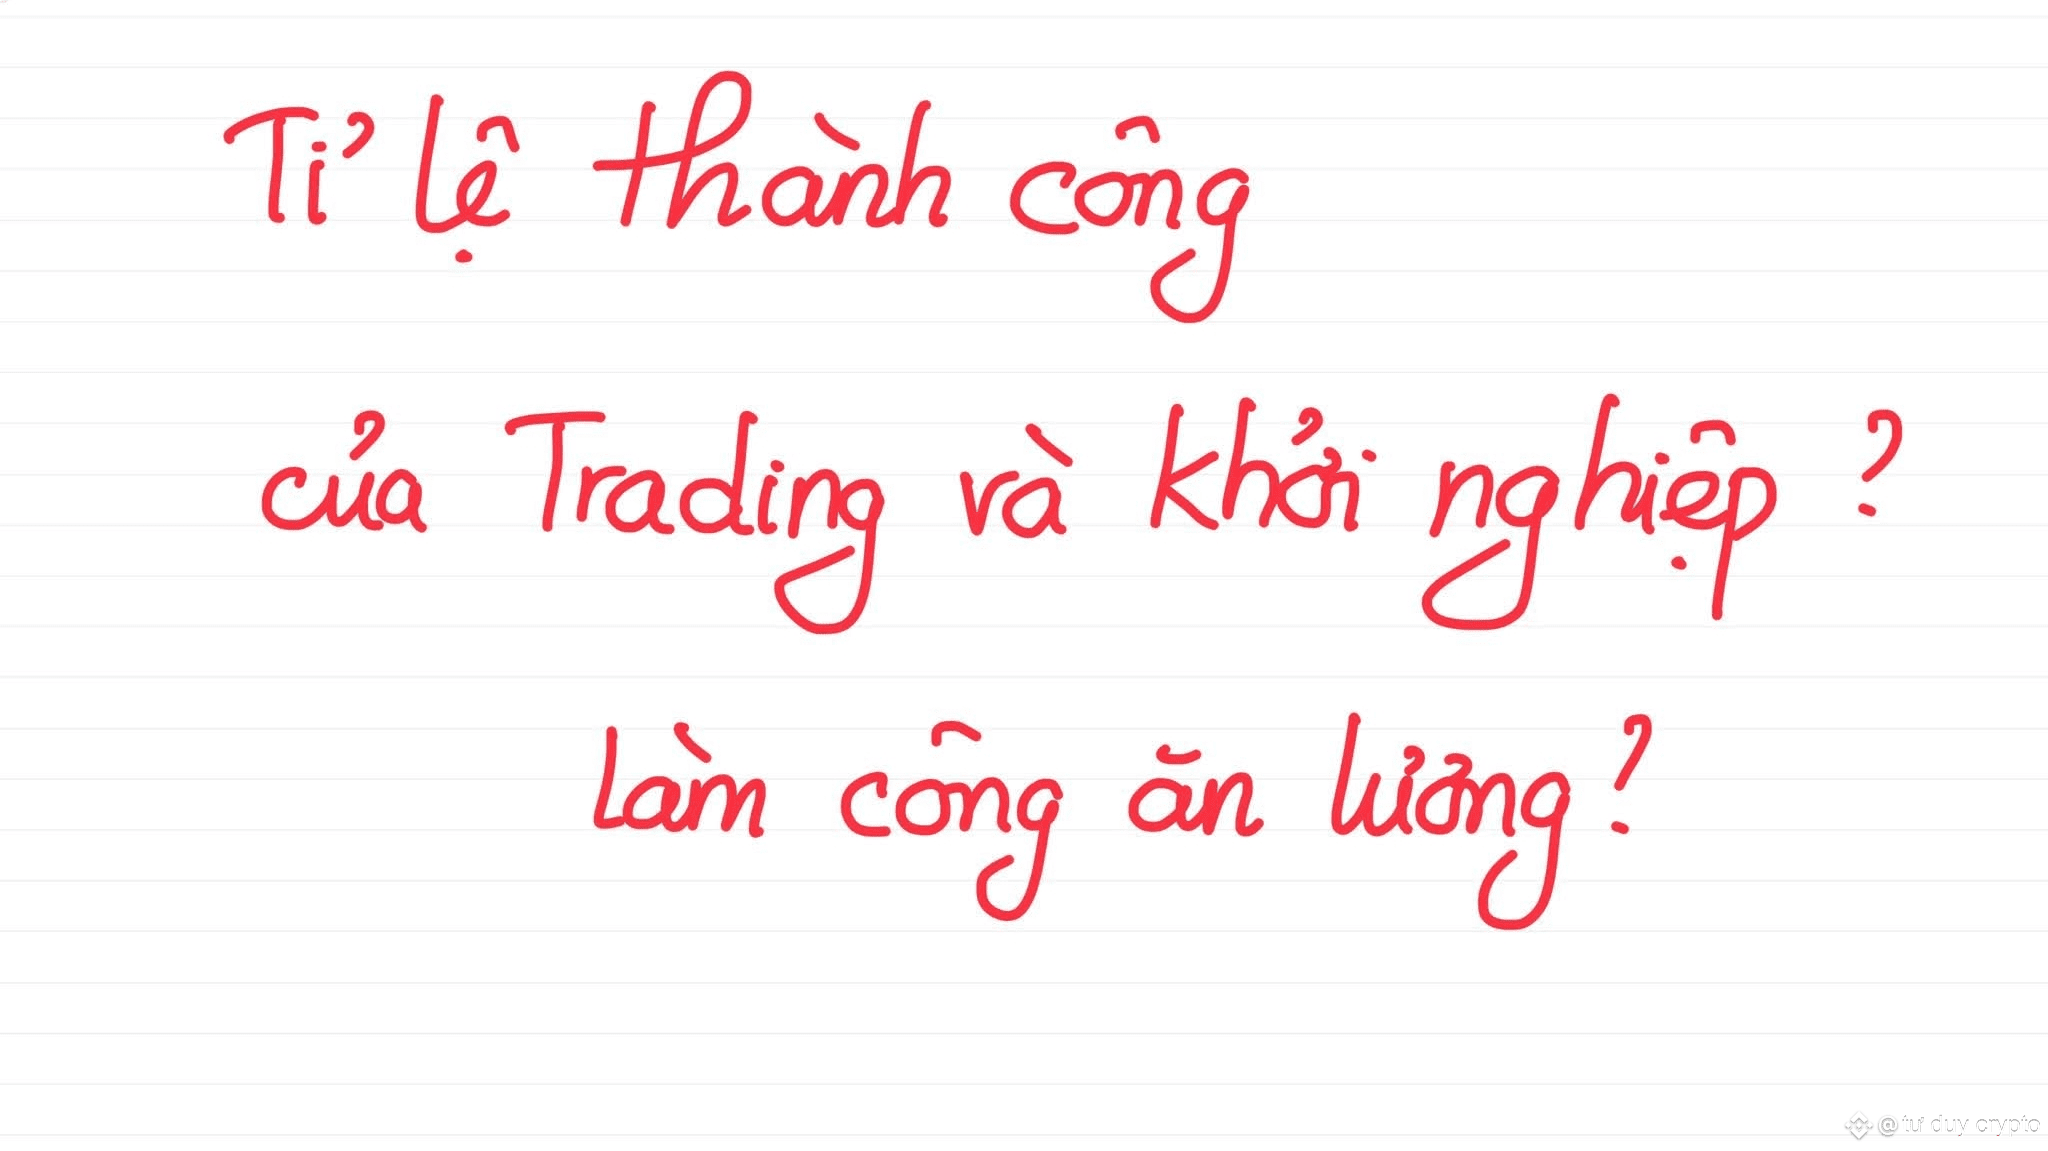 Tỉ lệ thành công
của Trading và khởi nghiệp?
làm công ăn lương?
@tư duy crypto